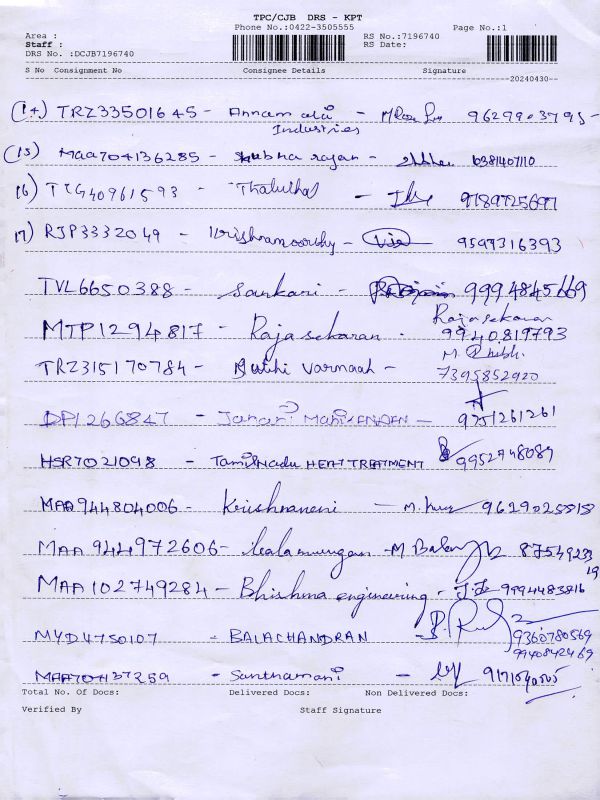 TPC/CJB DRS - KPT
Phone No.:0422-3505555 Page No.:1
Area : RS No.:7196740
Staff : RS Date:
DRS No. :DCJB7196740
S No Consignment No Consignee Details Signature
20240430
(14) TRZ33501645 - Annamalai - 9629903795
Industries
(15) MAA704136285 - Shubha rajan - 6381407110
16) TCG40961593 - 9789725697
17) RJP3332049 - Krishnamoorthy - 9597316393
TVL6650388 - Sankari - 9994845669
Rajasekaran
MTP1294817 - Rajasekaran - 9940819793
TRZ315170784 - varmaah - 7395852920
DPI266847 - Janani MANIKANDAN - 9751261261
HSR7021098 - TamilNadu HEAT TREATMENT 9952748089
MAA944804006 - Krishnaveni - 9629025818
MAA944972606 - balamurugan - M Bala 8754923319
MAA102749284 - Bhishma engineering - 9994483816
MYD4750107 - BALACHANDRAN - 9360780569
9940842469
MAA704137259 - Santhamani -
Total No. Of Docs: Delivered Docs: Non Delivered Docs:
Verified By Staff Signature